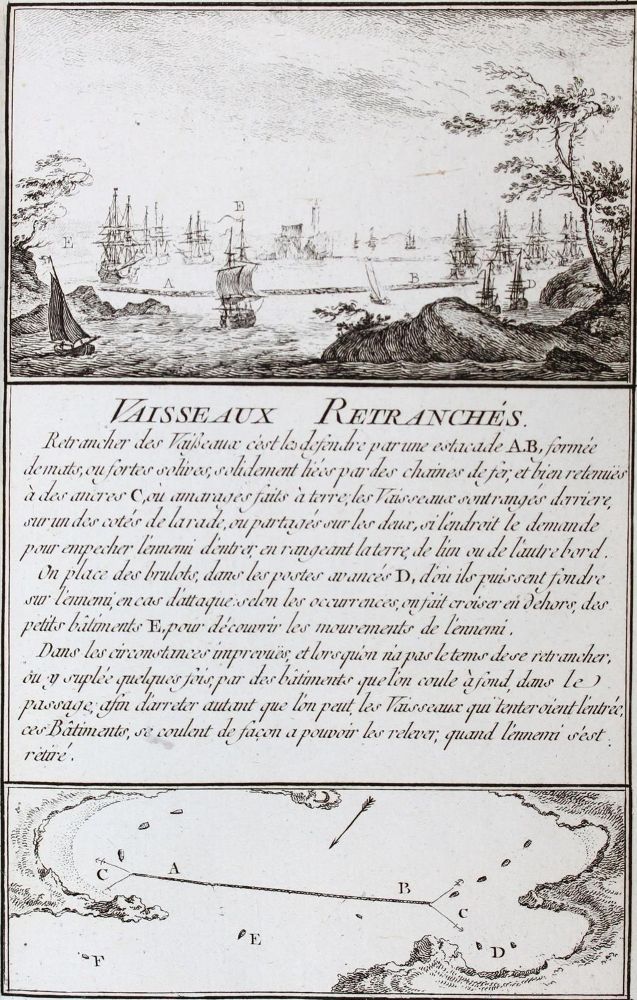 E
E
A
B
D
VAISSEAUX RETRANCHÉS.
Retrancher des Vaißeaux c'est les defendre par une estacade A.B, formée
de mats, ou fortes solives, solidement liées par des chaines de fer, et bien retenües
à des ancres C, ou amarages faits à terre; les Vaisseaux sont rangés derriere,
sur un des cotés de la rade, ou partagés sur les deux, si l'endroit le demande
pour empecher l'ennemi d'entrer, en rangeant la terre, de l'un ou de l'autre bord.
On place des brulots, dans les postes avancés D, d'où ils puissent fondre
sur l'ennemi, en cas d'attaque: selon les occurrences, on fait croiser en dehors, des
petits bâtiments E, pour découvrir les mouvements de l'ennemi.
Dans les circonstances imprevuës, et lorsqu'on n'a pas le tems de se retrancher,
on y suplée quelques fois, par des bâtiments que l'on coule à fond, dans le
passage; afin d'arreter autant que l'on peut, les Vaisseaux qui tenteroient l'entrée,
ces Bâtiments, se coulent de façon a pouvoir les relever, quand l'ennemi s'est
retiré.
C
A
B
C
E
D
F